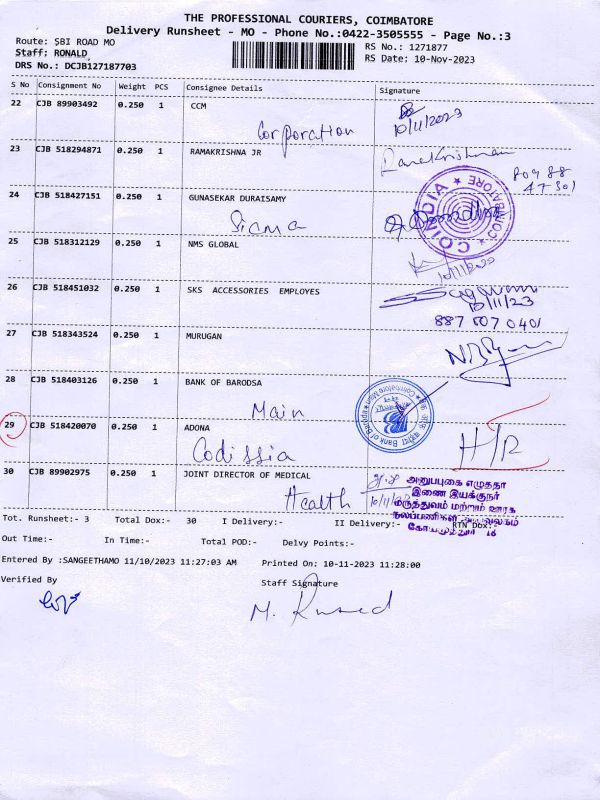 THE PROFESSIONAL COURIERS, COIMBATORE
Delivery Runsheet - MO - Phone No.:0422-3505555 - Page No.:3
Route: SBI ROAD MO
RS No.: 1271877
Staff: RONALD
RS Date: 10-Nov-2023
DRS No.: DCJB127187703
S No Consignment No Weight PCS Consignee Details Signature
22 CJB 89903492 0.250 1 CCM
Corporation 10/11/2023
23 CJB 518294871 0.250 1 RAMAKRISHNA JR
24 CJB 518427151 0.250 1 GUNASEKAR DURAISAMY
COINDIA ★ COIMBATORE ★
25 CJB 518312129 0.250 1 NMS GLOBAL
26 CJB 518451032 0.250 1 SKS ACCESSORIES EMPLOYES
10/11/23
27 CJB 518343524 0.250 1 MURUGAN
28 CJB 518403126 0.250 1 BANK OF BARODSA
Main
29 CJB 518420070 0.250 1 ADONA
Codissia H/R
30 CJB 89902975 0.250 1 JOINT DIRECTOR OF MEDICAL
Health
இணை இயக்குநர்
மருத்துவம் மற்றும் ஊரக
Tot. Runsheet:- 3 Total Dox:- 30 I Delivery:- II Delivery:- RTN Dox:-
Out Time:- In Time:- Total POD:- Delvy Points:-
Entered By :SANGEETHAMO 11/10/2023 11:27:03 AM Printed On: 10-11-2023 11:28:00
Verified By Staff Signature